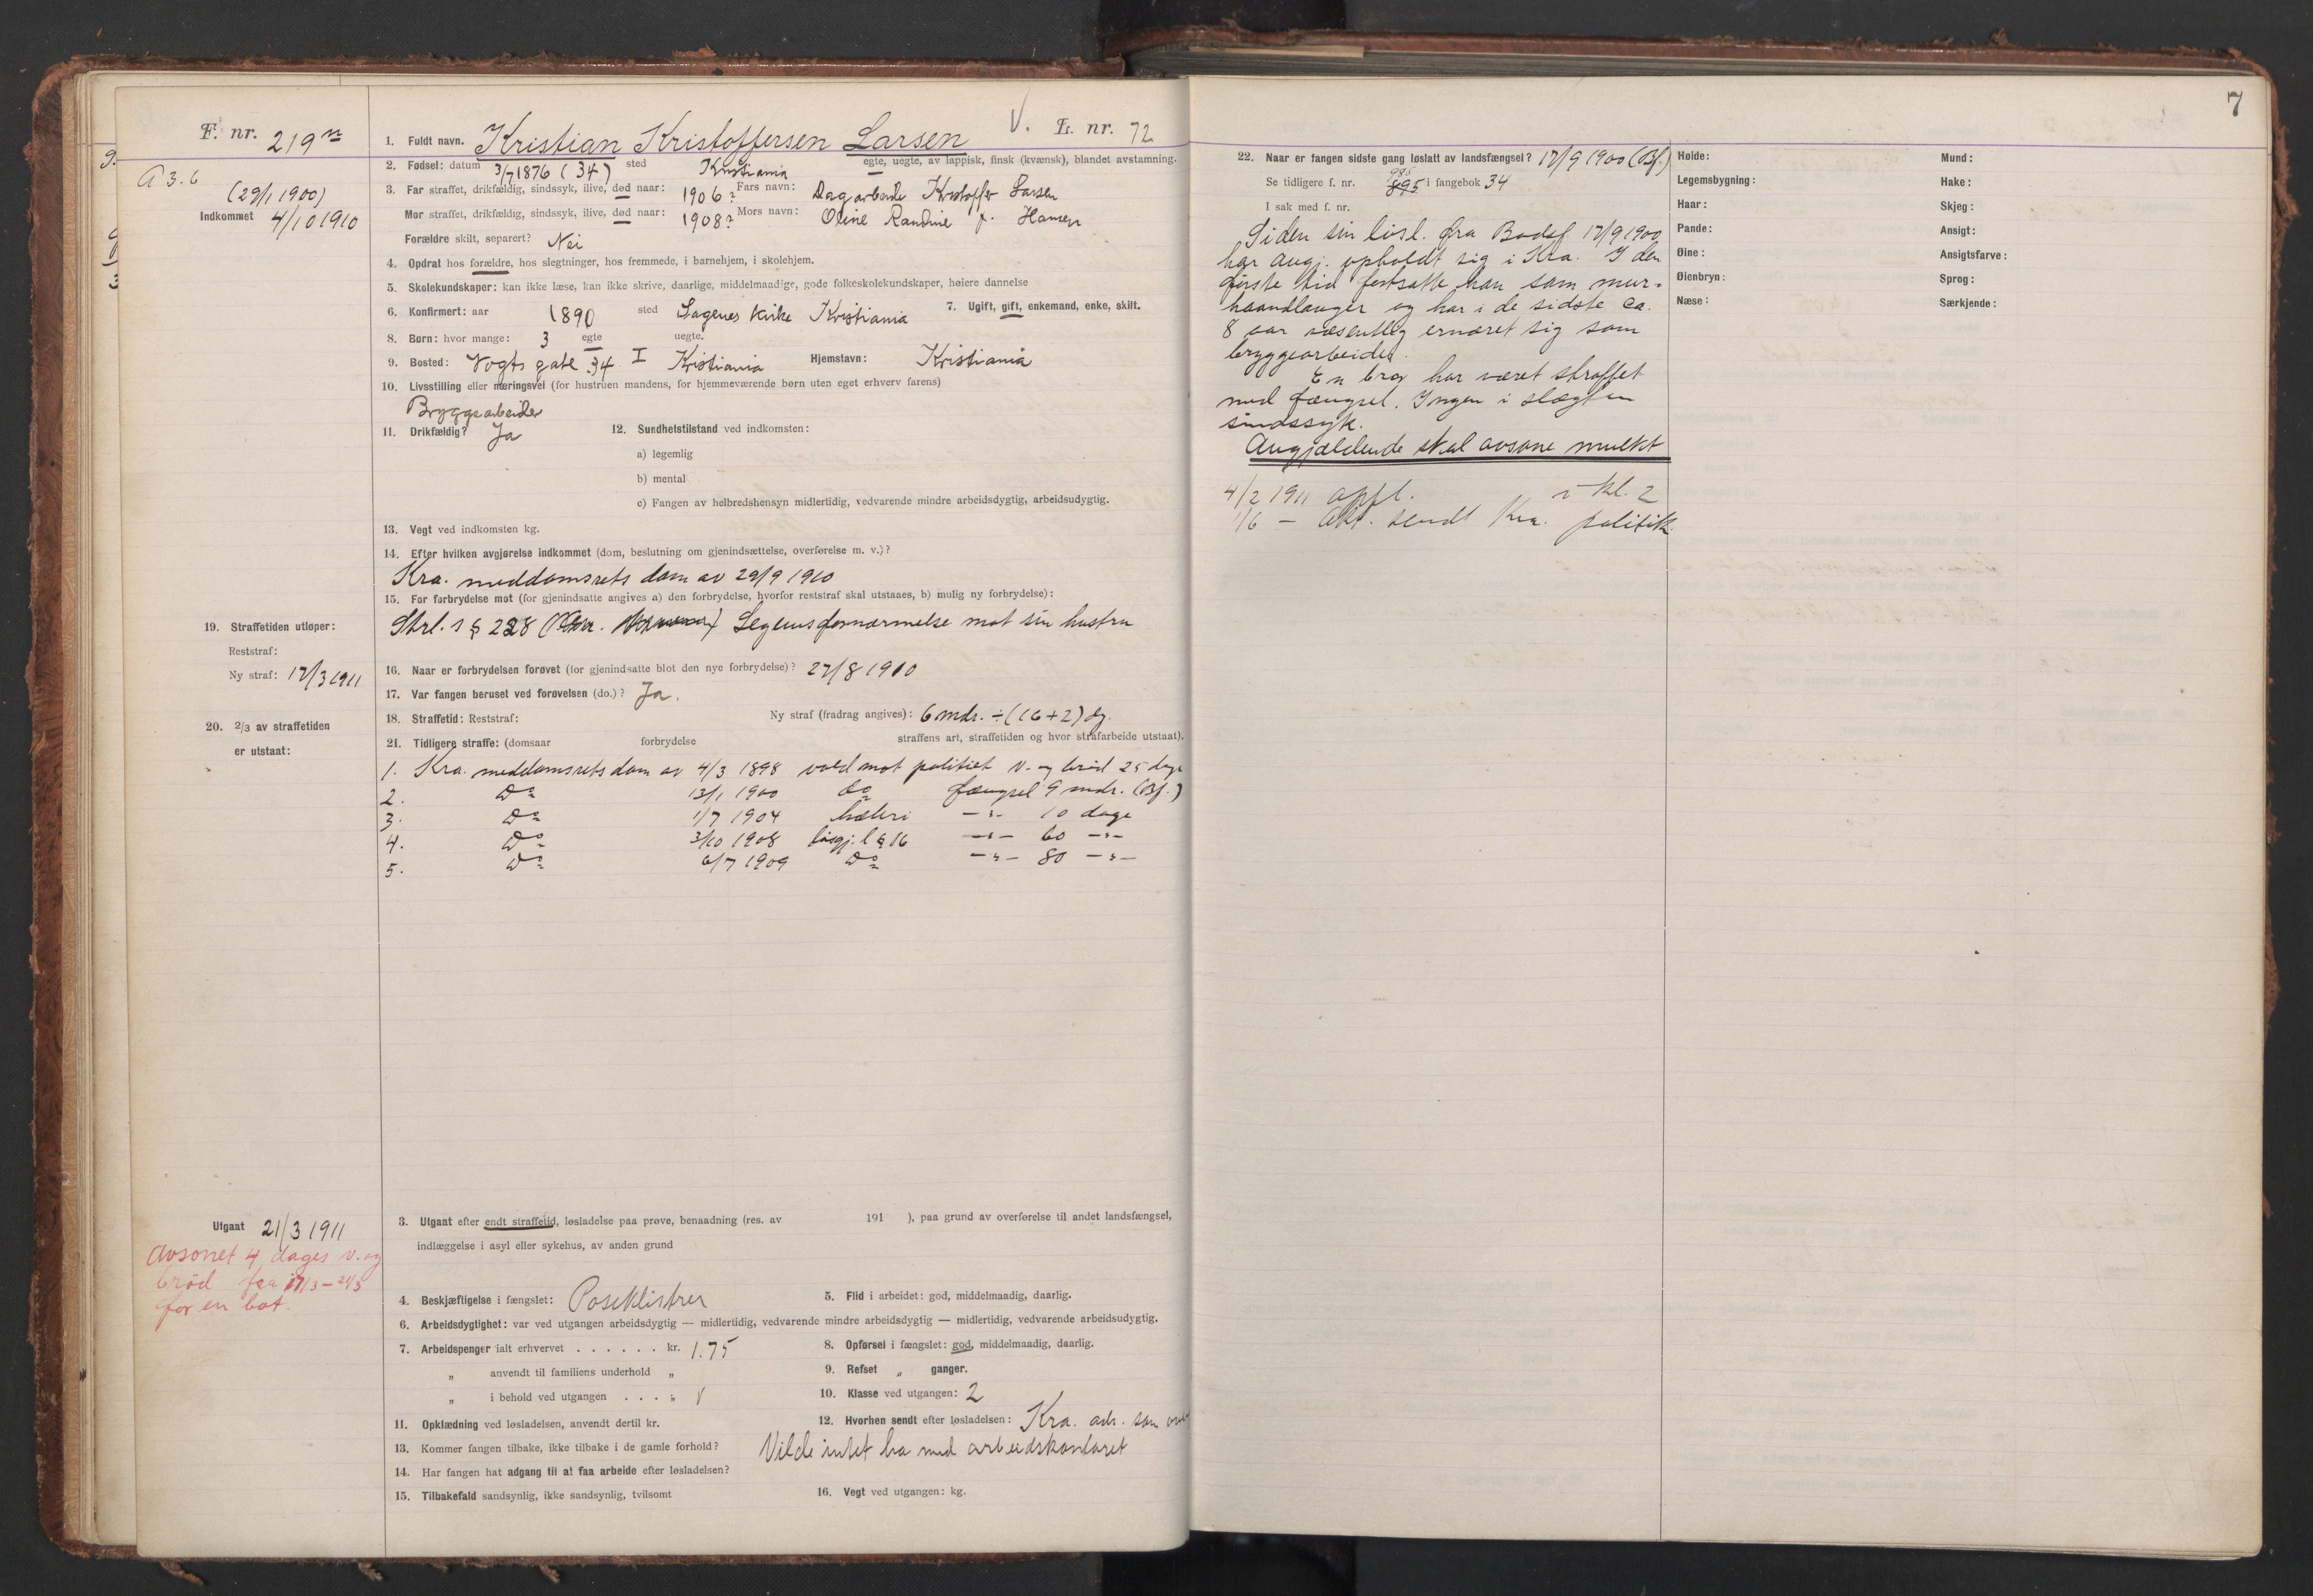 F. nr. 219
A 3.6
(29/1 1900)
Indkommet 4/10 1910
V. L. nr. 72
1. Fuldt navn. Kristian Kristoffersen Larsen
2. Fødsel: datum 3/7 1876 (34) sted Kristiania egte, uegte, av lappisk, finsk (kvænsk), blandet avstamning.
3. Far straffet, drikfældig, sindssyk, ilive, død naar: 1906? Fars navn: Dagarbeider Kristoffer Larsen
Mor straffet, drikfældig, sindssyk, ilive, død naar: 1908? Mors navn: Oline Randine f. Hansen
Forældre skilt, separert? Nei
4. Opdrat hos forældre, hos slegtninger, hos fremmede, i barnehjem, i skolehjem.
5. Skolekundskaper: kan ikke læse, kan ikke skrive, daarlige, middelmaadige, gode folkeskolekundskaper, høiere dannelse
6. Konfirmert: aar 1890 sted Sagenes kirke Kristiania 7. Ugift, gift, enkemand, enke, skilt.
8. Børn: hvor mange: 3 egte uegte.
9. Bosted: Vogts gate 34 I Kristiania Hjemstavn: Kristiania
10. Livsstilling eller næringsvei (for hustruen mandens, for hjemmeværende børn uten eget erhverv farens)
Bryggearbeider
11. Drikfældig? Ja 12. Sundhetstilstand ved indkomsten:
a) legemlig
b) mental
c) Fangen av helbredshensyn midlertidig, vedvarende mindre arbeidsdygtig, arbeidsudygtig.
13. Vegt ved indkomsten kg.
14. Efter hvilken avgjørelse indkommet (dom, beslutning om gjenindsættelse, overførelse m. v.)?
Kra. meddomsrets dom av 29/9 1910
15. For forbrydelse mot (for gjenindsatte angives a) den forbrydelse, hvorfor reststraf skal utstaaes, b) mulig ny forbrydelse):
Strl.s § 228 Legemsfornærmelse mot sin hustru
19. Straffetiden utløper:
Reststraf:
Ny straf: 17/3 1911
16. Naar er forbrydelsen forøvet (for gjenindsatte blot den nye forbrydelse)? 27/8 1910
17. Var fangen beruset ved forøvelsen (do.)? Ja.
18. Straffetid: Reststraf: Ny straf (fradrag angives): 6 mdr. ÷ (16+2) dg.
20. 2/3 av straffetiden
er utstaat:
21. Tidligere straffe: (domsaar forbrydelse straffens art, straffetiden og hvor strafarbeide utstaat).
1. Kra. meddomsrets dom av 4/3 1898 vold mot politiet v. og brød 25 dage
2. Do 13/1 1900 do fængsel 9 mdr. (Bf.)
3. Do 1/7 1904 hæleri -"- 10 dage
4. Do 3/10 1908 løsgj. l § 16 -"- 60 -"-
5. Do 6/7 1909 Do -"- 80 -"-
Utgaat 21/3 1911
Avsonet 4 dages v. og
brød fra 17/3-21/3
for en bot.
3. Utgaat efter endt straffetid, løsladelse paa prøve, benaadning (res. av 191 ), paa grund av overførelse til andet landsfængsel,
indlæggelse i asyl eller sykehus, av anden grund
4. Beskjæftigelse i fængslet: Poseklistrer 5. Flid i arbeidet: god, middelmaadig, daarlig.
6. Arbeidsdygtighet: var ved utgangen arbeidsdygtig — midlertidig, vedvarende mindre arbeidsdygtig — midlertidig, vedvarende arbeidsudygtig.
7. Arbeidspenger ialt erhvervet . . . . . . kr. 1.75 8. Opførsel i fængslet: god, middelmaadig, daarlig.
" anvendt til familiens underhold " 9. Refset " ganger.
" i behold ved utgangen . . . " 10. Klasse ved utgangen: 2
11. Opklædning ved løsladelsen, anvendt dertil kr. 12. Hvorhen sendt efter løsladelsen: Kra. adr. som
13. Kommer fangen tilbake, ikke tilbake i de gamle forhold? Vilde intet ha med arbeidskontoret
14. Har fangen hat adgang til at faa arbeide efter løsladelsen?
15. Tilbakefald sandsynlig, ikke sandsynlig, tvilsomt 16. Vegt ved utgangen: kg.
7
22. Naar er fangen sidste gang løslatt av landsfængsel? 17/9 1900 (Bf.)
Se tidligere f. nr. 895 985 i fangebok 34
I sak med f. nr.
Siden sin løsl. fra Bodsf 17/9 1900
har angj. opholdt sig i Kra. I den
første tid fortsatte han som mur-
haandlanger og har i de sidste ca.
8 aar væsentlig ernæret sig som
bryggearbeider.
En bror har været straffet
med fængsel. Ingen i slægten
sindssyk.
Angjældende skal avsone mulkt
4/2 1911 opfl. i kl. 2
1/6 - Akt. sendt Kra. politik.
Høide:
Legemsbygning:
Haar:
Pande:
Øine:
Øienbryn:
Næse:
Mund:
Hake:
Skjeg:
Ansigt:
Ansigtsfarve:
Sprog:
Særkjende: